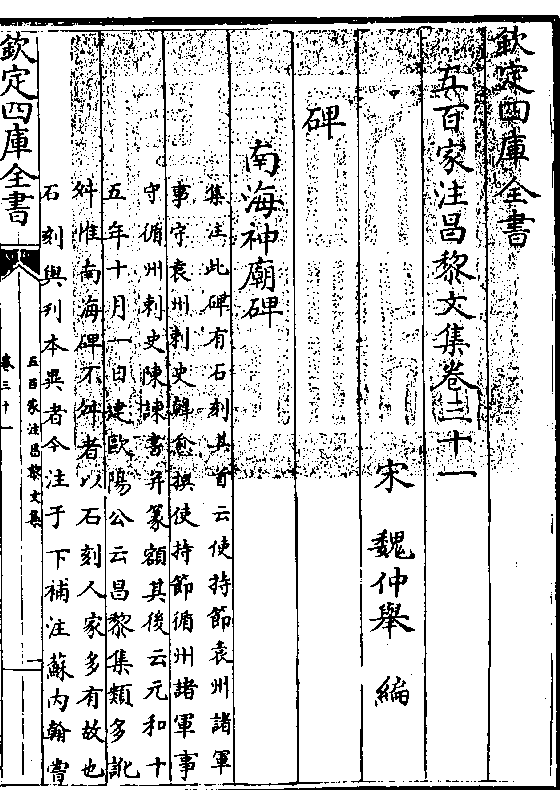 欽定四庫全書
五百家注昌黎文集卷三十一
宋 魏仲舉 編
碑
南海神廟碑
集注此碑有石刻其首云使持節袁州諸軍
事守袁州刺史韓愈撰使持節循州諸軍事
守循州刺史陳諫書并篆額其後云元和十
五年十月一日建歐陽公云昌黎集類多訛
舛惟南海碑不舛者以石刻人家多有故也
石刻與列本異者今注于下補注蘇内翰嘗
欽定四庫全書
五百家注昌黎文集
卷三十一